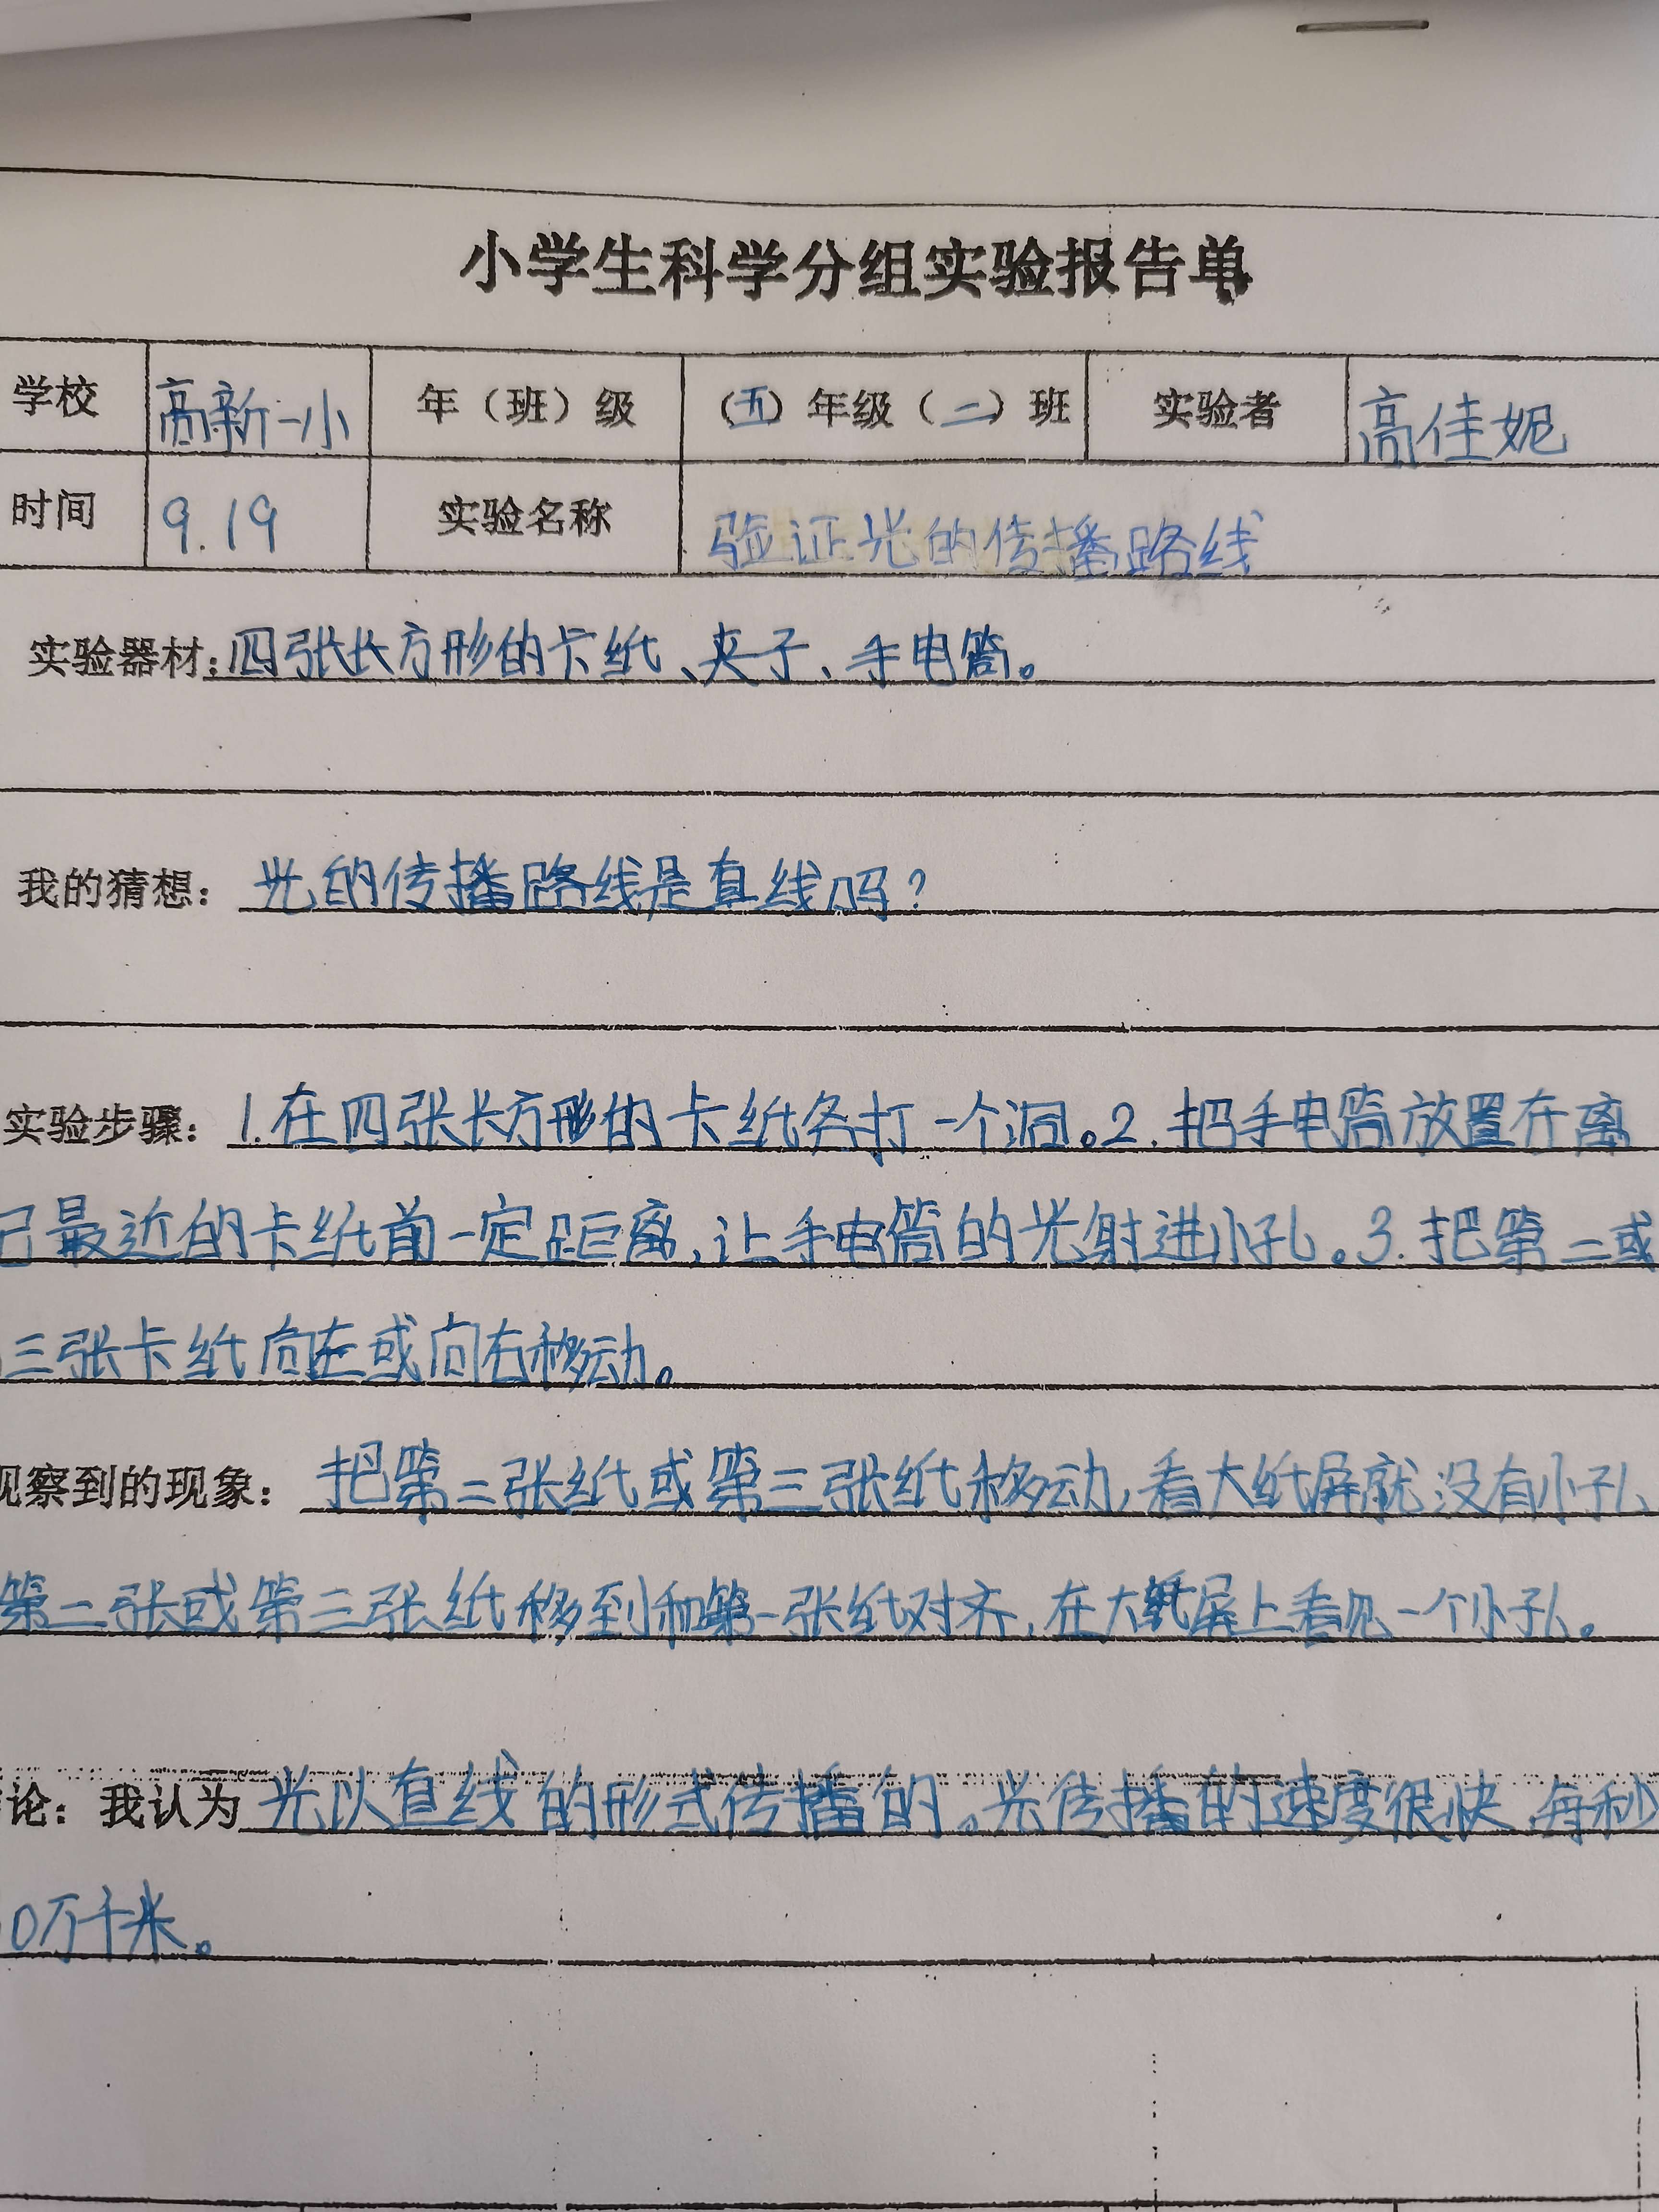 小学生科学分组实验报告单
学校 高新一小 年（班）级 （五）年级（二）班 实验者 高佳妮
时间 9.19 实验名称 验证光的传播路线
实验器材：四张长方形的卡纸、夹子、手电筒。
我的猜想：光的传播路线是直线吗？
实验步骤：1.在四张长方形的卡纸各打一个洞。2.把手电筒放置在离
己最近的卡纸前一定距离，让手电筒的光射进小孔。3.把第二或
三张卡纸向左或向右移动。
观察到的现象：把第二张纸或第三张纸移动，看大纸屏就没有小孔
第二张或第三张纸移到和第一张纸对齐，在大纸屏上看见一个小孔。
论：我认为光以直线的形式传播的。光传播的速度很快，每秒
0万千米。